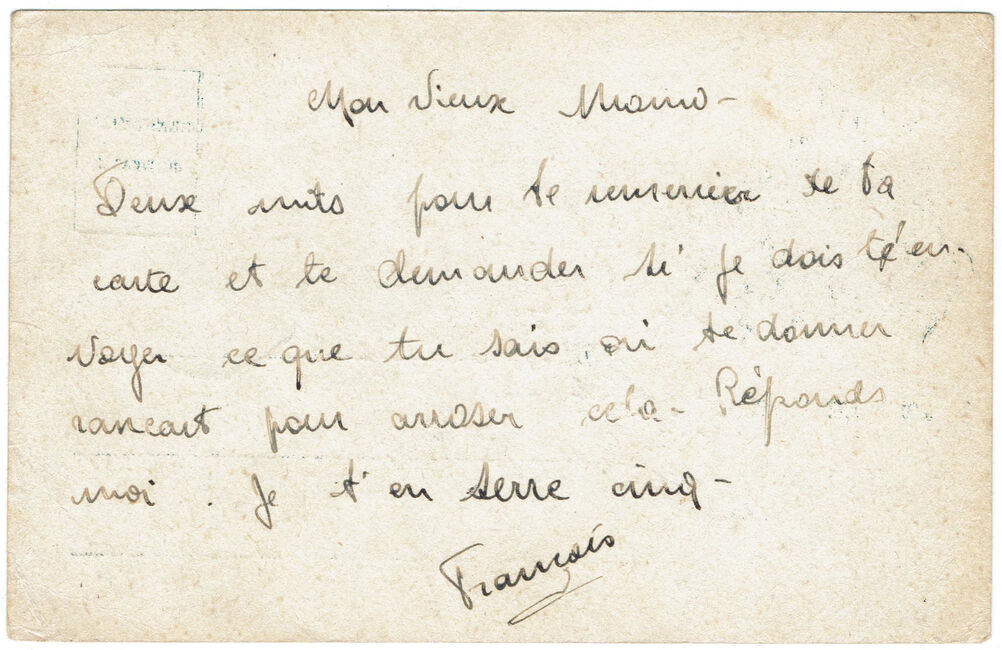 Mon Vieux Momo -
Deux mots pour te remercier de ta
carte et te demander si je dois t'en-
voyer ce que tu sais, ou te donner
rancart pour arroser cela - Réponds
moi . Je t'en serre cinq -
François